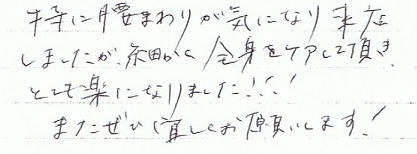 特に腰まわりが気になり来店
しましたが、細かく全身をケアして頂き
とても楽になりました!!!
またぜひ宜しくお願いします!